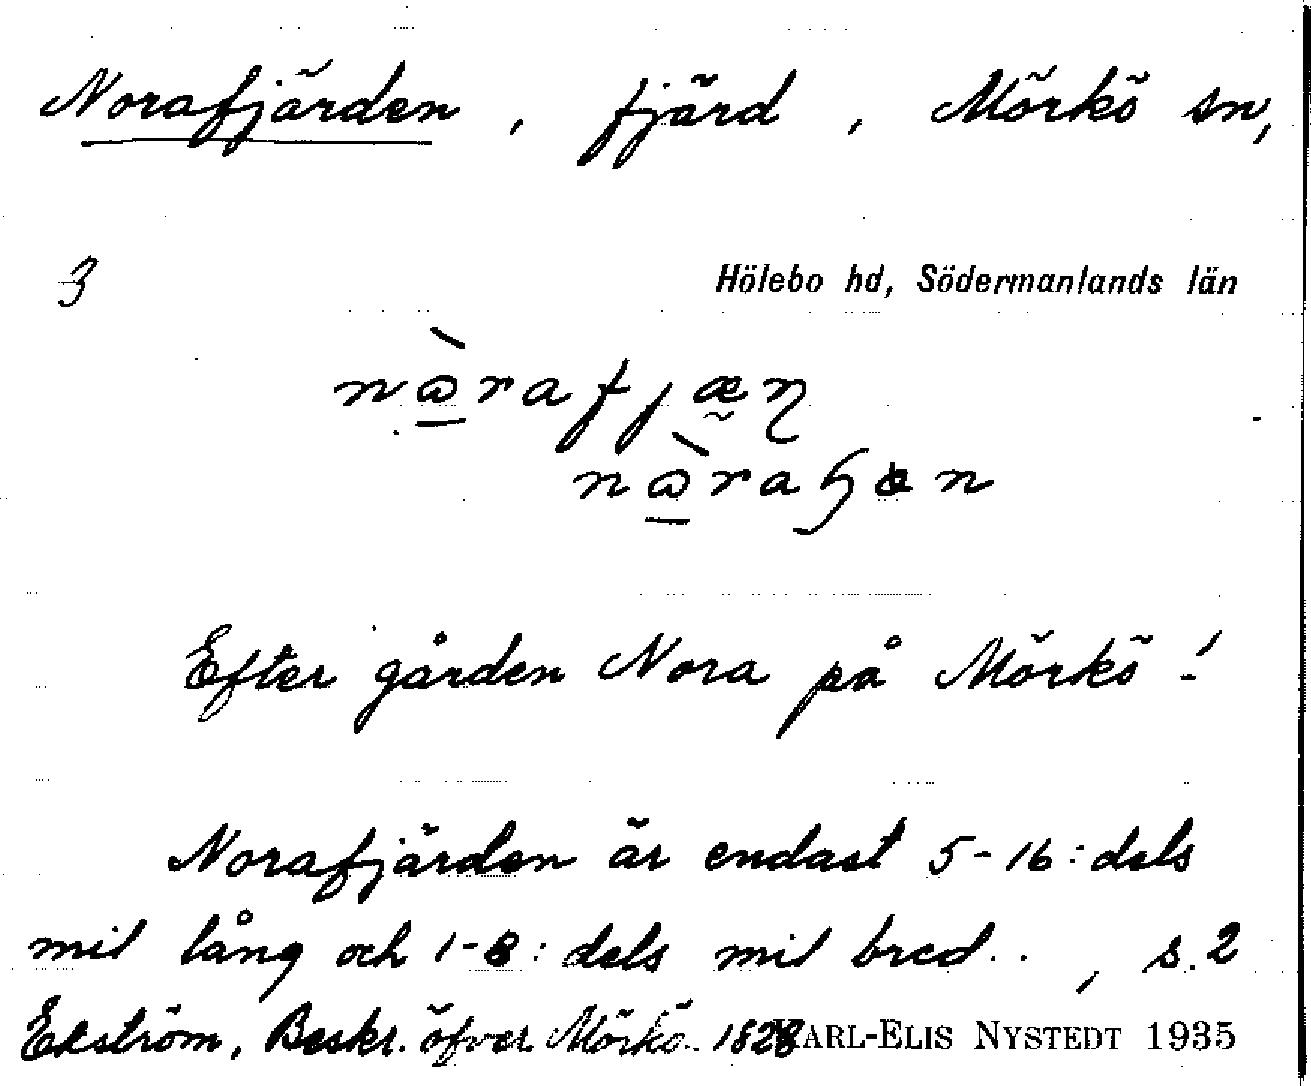 Norafjärden, fjärd, Mörkö sn,
3 Hölebo hd, Södermanlands län
Efter gården Nora på Mörkö!
Norafjärden är endast 5-16:dels
mil lång och 1-8:dels mil bred.., s.2
Ekström, Beskr. öfver Mörkö. 1828 KARL-ELIS NYSTEDT 1935